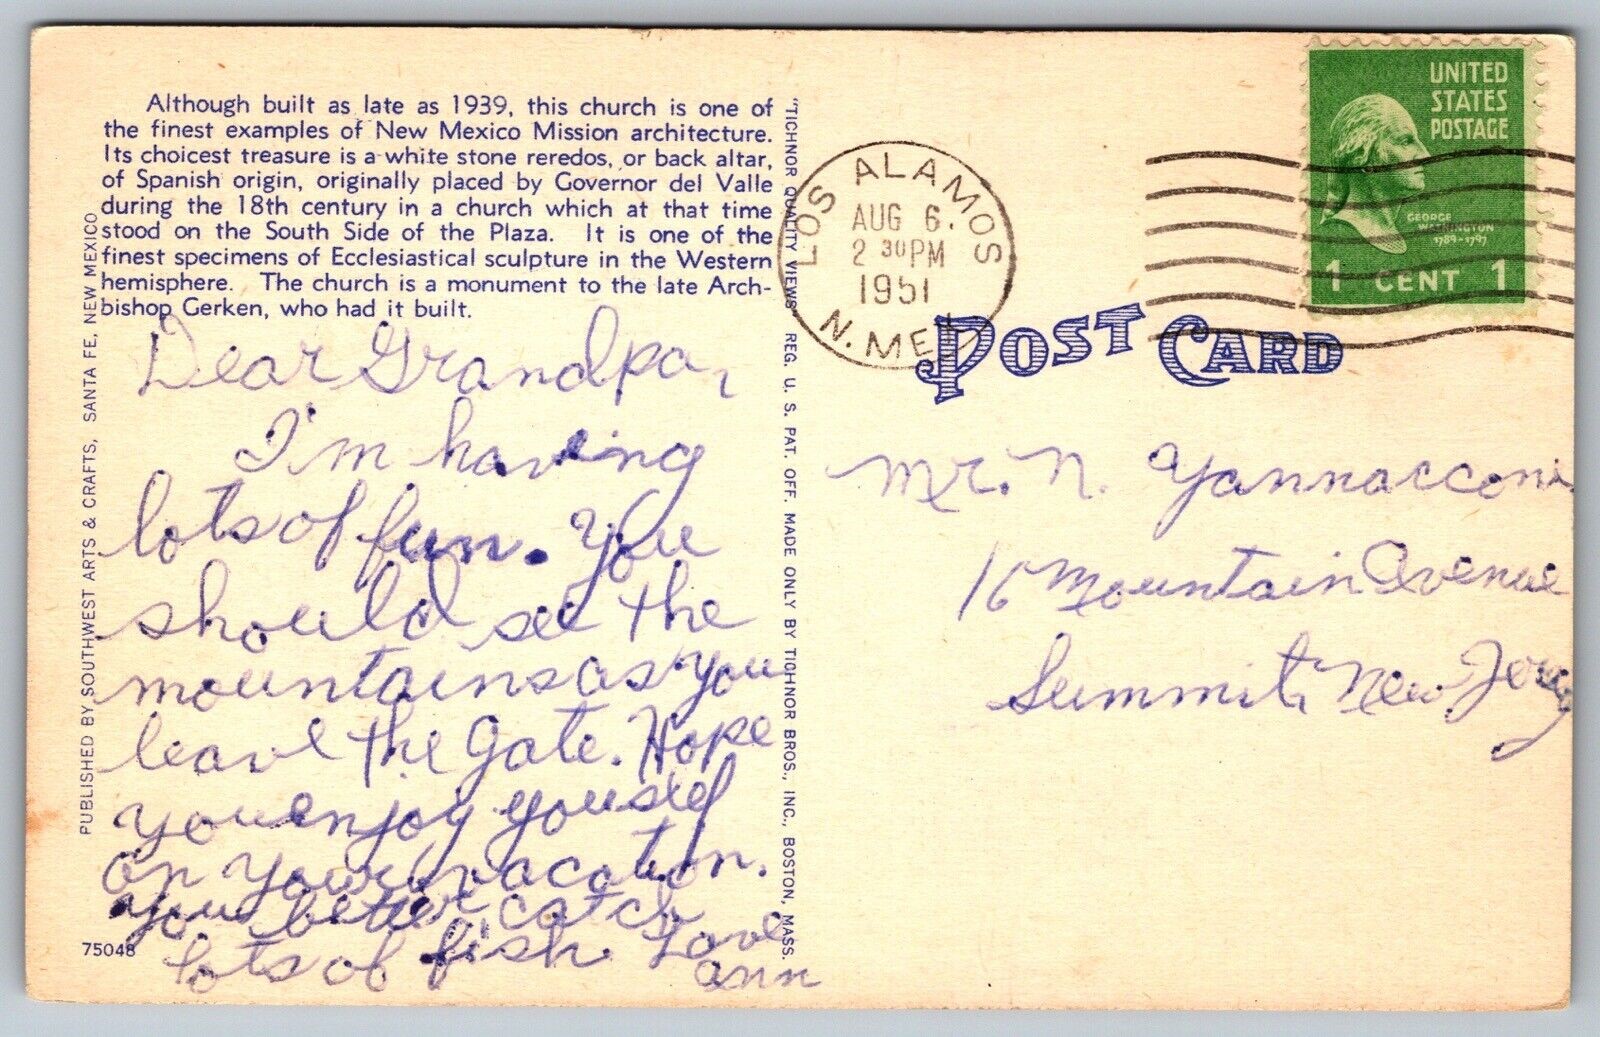 Although built as late as 1939, this church is one of
the finest examples of New Mexico Mission architecture.
Its choicest treasure is a white stone reredos, or back altar,
of Spanish origin, originally placed by Governor del Valle
during the 18th century in a church which at that time
stood on the South Side of the Plaza. It is one of the
finest specimens of Ecclesiastical sculpture in the Western
hemisphere. The church is a monument to the late Arch-
bishop Gerken, who had it built.
Dear Grandpa,
I'm having
lots of fun. You
should see the
mountains as you
leave the gate. Hope
you enjoy yourself
on your vacation.
you better catch
lots of fish Love
ann
75048
PUBLISHED BY SOUTHWEST ARTS & CRAFTS, SANTA FE, NEW MEXICO
"TICHNOR QUALITY VIEWS" REG. U. S. PAT. OFF. MADE ONLY BY TICHNOR BROS., INC., BOSTON, MASS.
LOS ALAMOS
AUG 6.
2 30 PM
1951
N. MEX
UNITED
STATES
POSTAGE
GEORGE
WASHINGTON
1789-1797
1 CENT 1
POST CARD
Mr. N. Yannacconi
16 Mountain Avenue
Summit, New Jersey